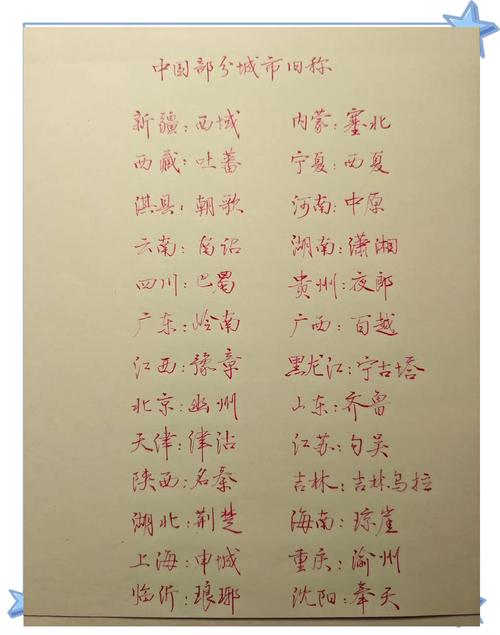 中国部分城市旧称
新疆：西域 内蒙：塞北
西藏：吐蕃 宁夏：西夏
淇县：朝歌 河南：中原
云南：南诏 湖南：潇湘
四川：巴蜀 贵州：夜郎
广东：岭南 广西：百越
江西：豫章 黑龙江：宁古塔
北京：幽州 山东：齐鲁
天津：津沽 江苏：勾吴
陕西：名秦 吉林：吉林乌拉
湖北：荆楚 海南：琼崖
上海：申城 重庆：渝州
临沂：琅琊 沈阳：奉天